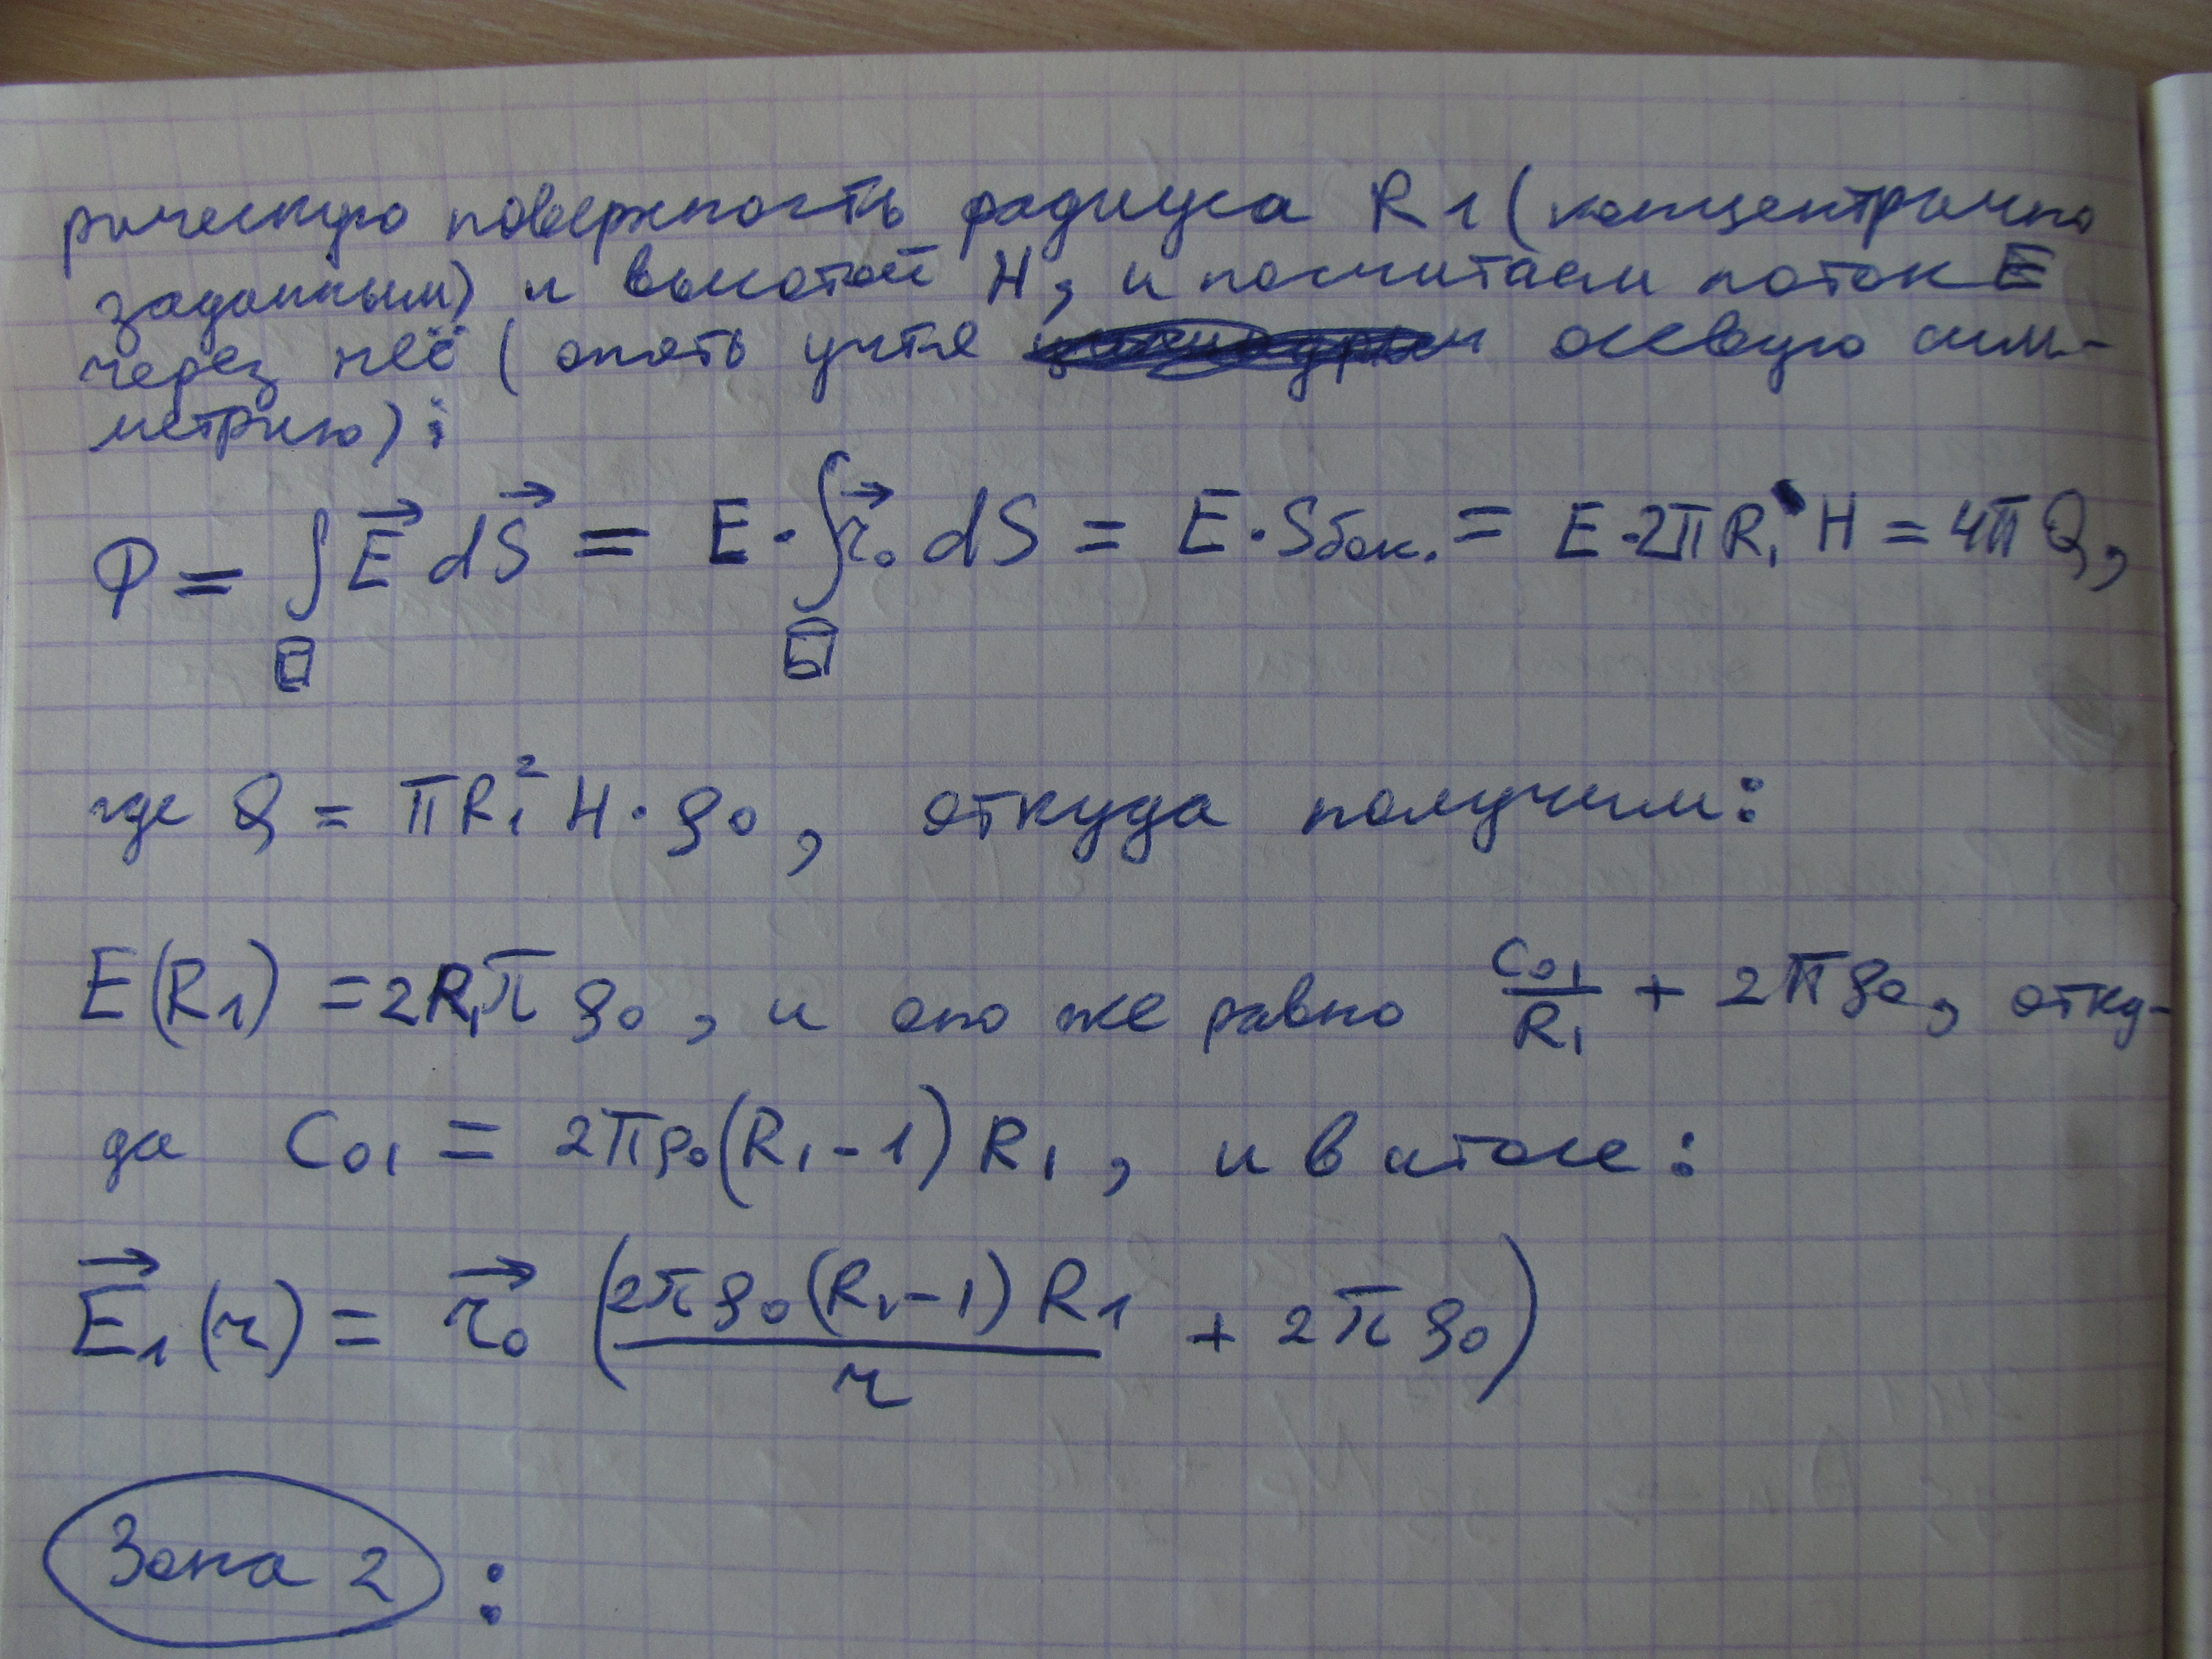 рическую поверхность радиуса R1 (концентрично
заданным) и высотой H, и посчитаем поток E
через неё (опять учтя осевую сим-
метрию):
Φ = ∫ E⃗ dS⃗ = E · ∫ r⃗₀ dS = E · Sбок. = E · 2πR₁ H = 4πQ,
где Q = πR₁² H · ρ₀, откуда получим:
E(R1) = 2R₁πρ₀, и оно же равно C₀₁/R₁ + 2πρ₀, отку-
да C₀₁ = 2πρ₀(R₁ - 1) R₁, и в итоге:
E⃗₁(r) = r⃗₀ (2πρ₀(R₁ - 1) R1 / r + 2πρ₀)
Зона 2 :